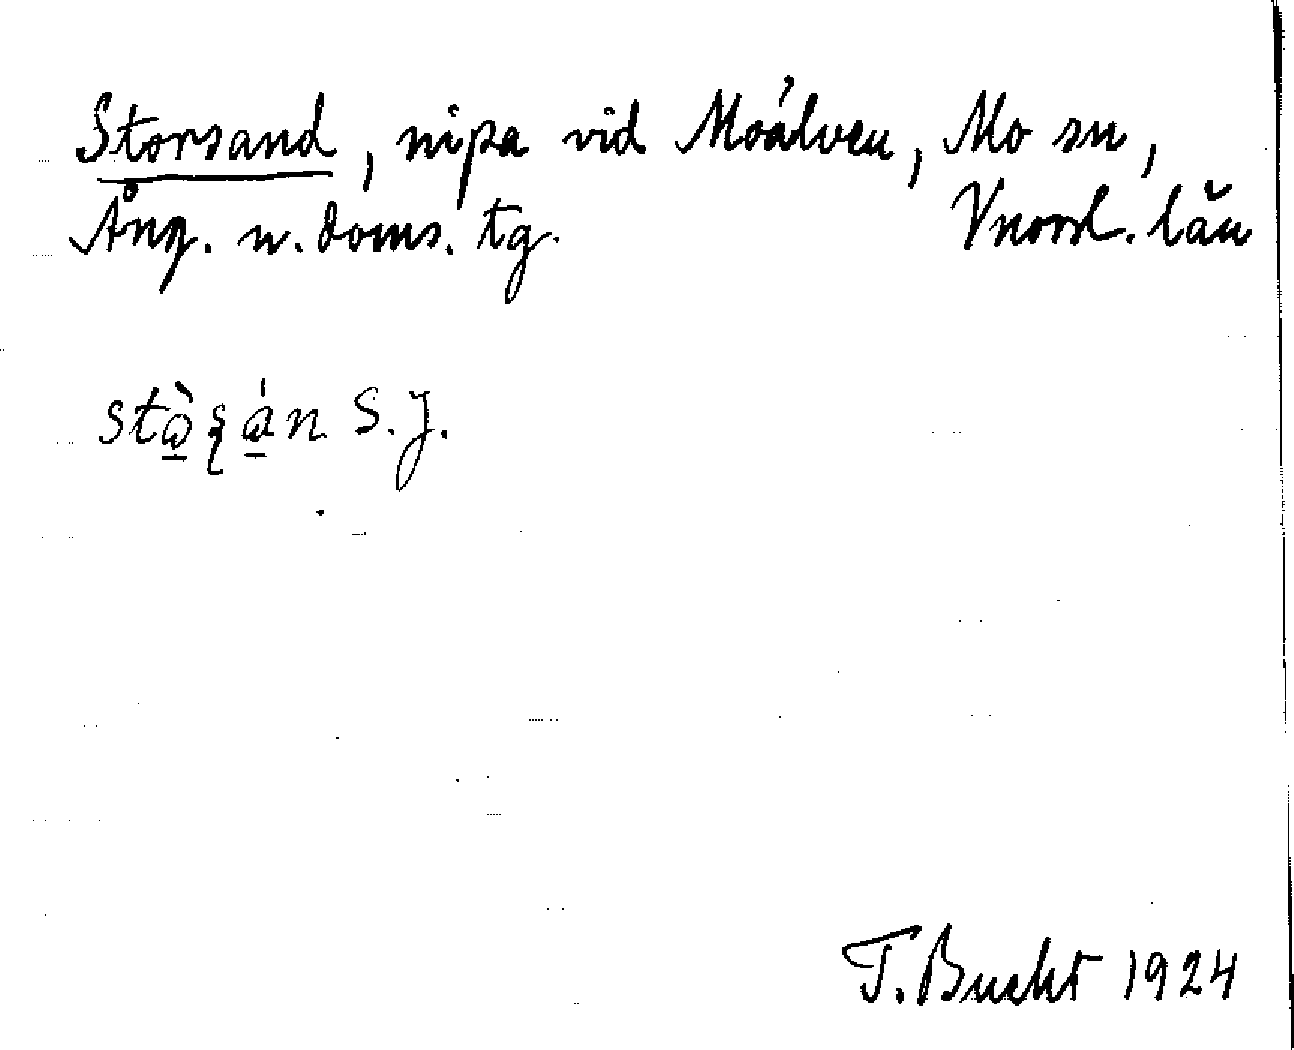 Storsand, nipa vid Moälven, Mo sn,
Ång. n. doms. tg. Vnorrl. län
S. J.
T. Bucht 1924